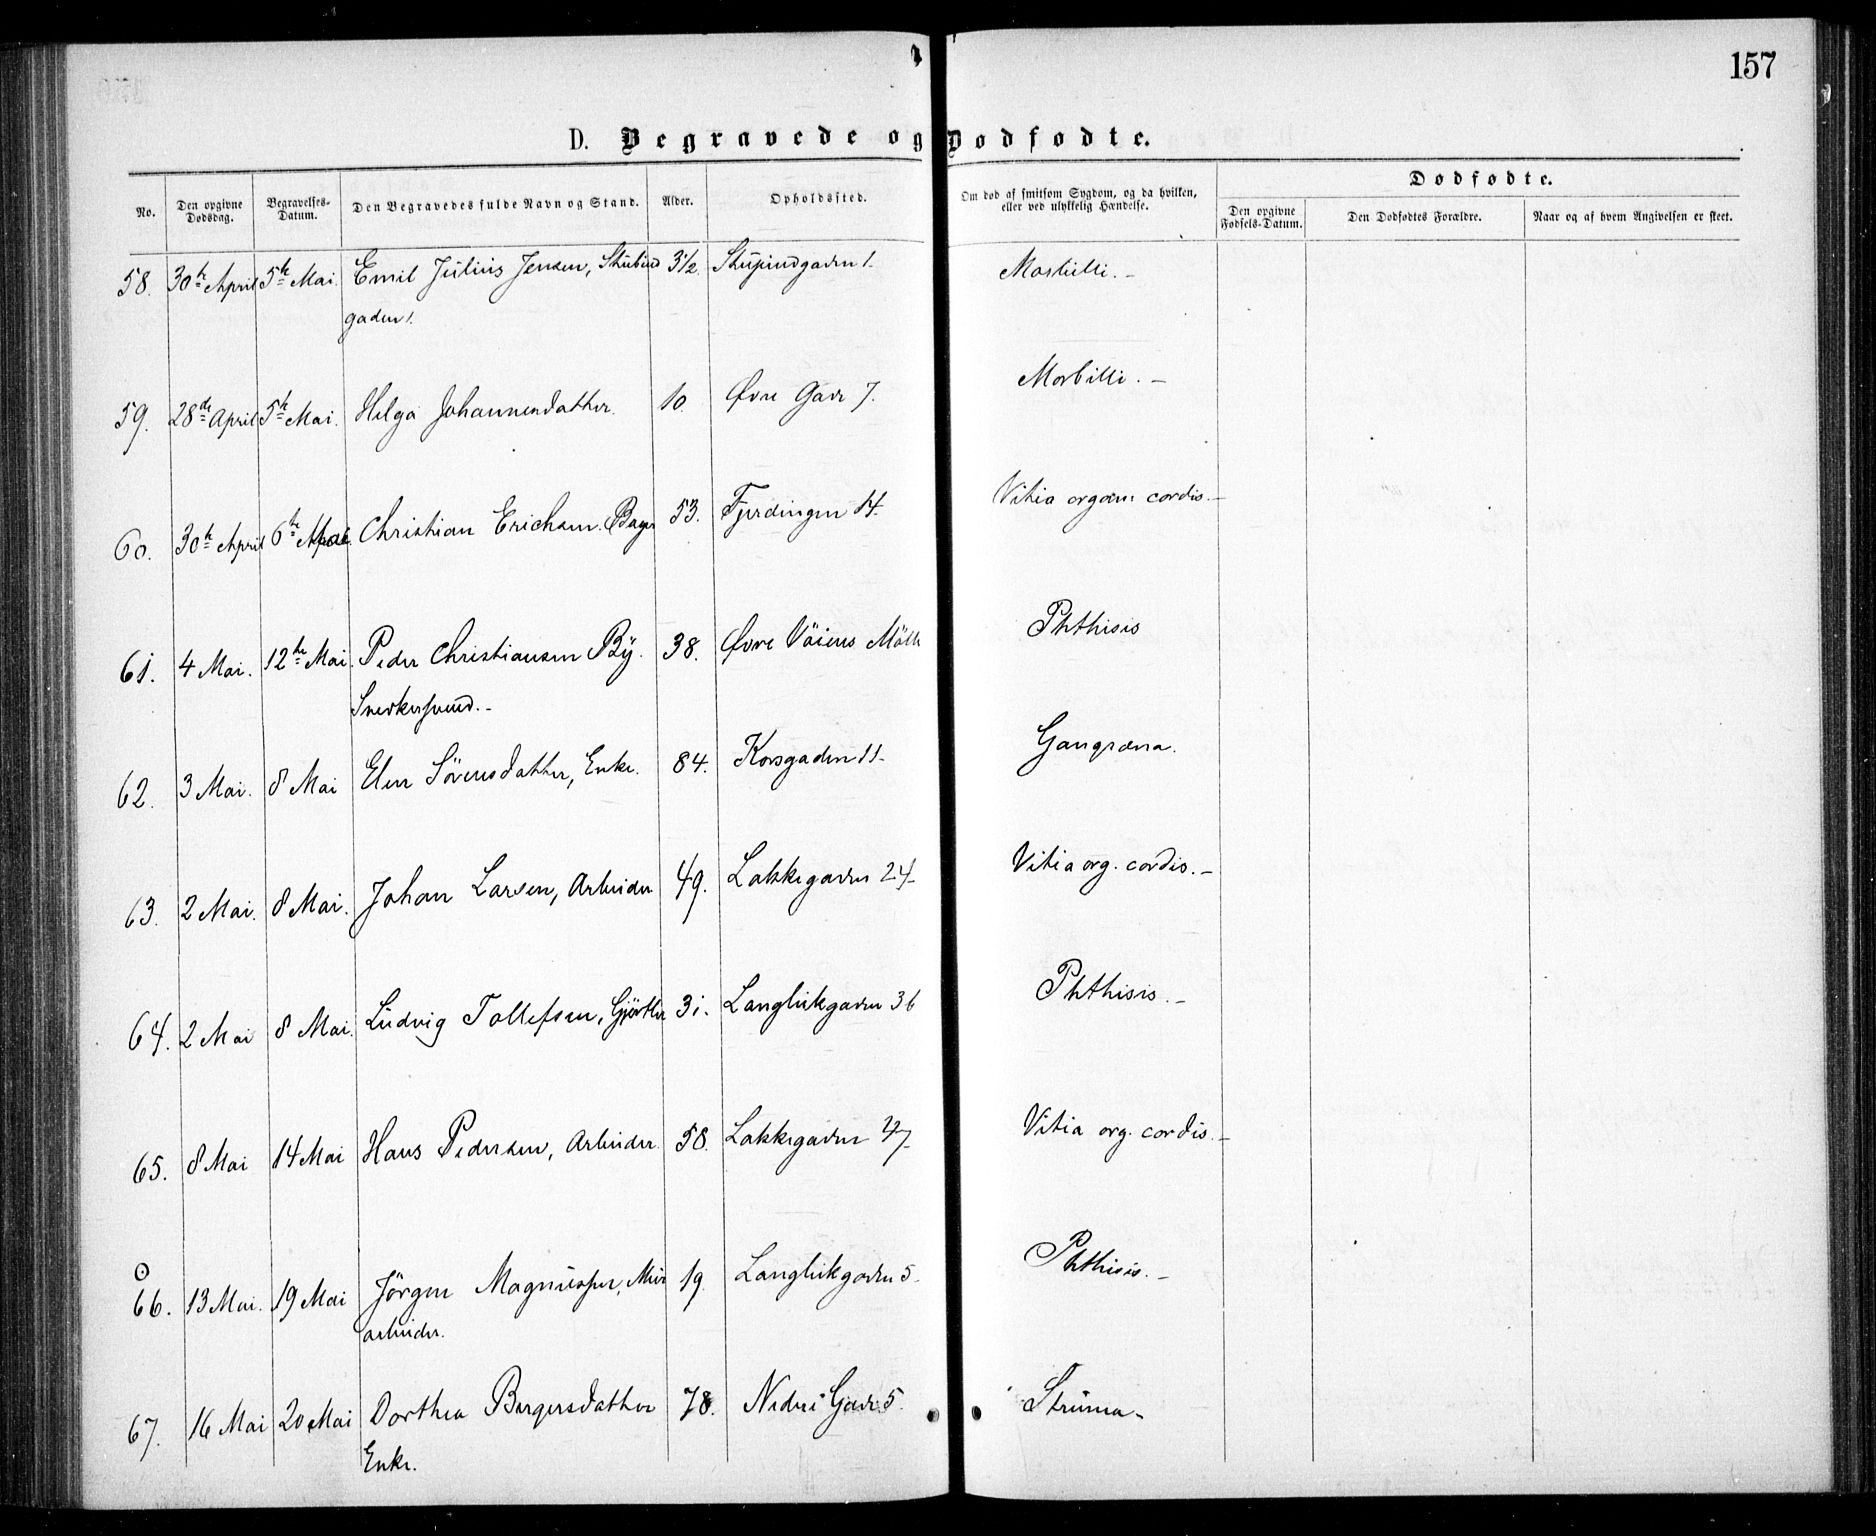 157
D. Begravede og Dødfødte.
No. Den opgivne Dødsdag. Begravelses-Datum. Den Begravedes fulde Navn og Stand. Alder. Opholdssted. Om død af smitsom Sygdom, og da hvilken, eller ved ulykkelig Hændelse. Dødfødte.
Den opgivne Fødsels-Datum. Den Dødfødtes Forældre. Naar og af hvem Angivelsen er skeet.
58. 30te April 5te Mai. Emil Julius Jensen, 3 1/2. 1. Morbilli.
gaden 1.
59. 28de April 5te Mai. Helga Johannesdatter. 10. Øvre Gade 7. Morbilli.
60. 30te April 6te Christian Erichsen. Bager 53. Fjerdingen 14. Vitia organ: cordis.
61. 4 Mai. 12te Mai. Peder Christiansen By. 38. Øvre Vöiens Mölle Phthisis
Snedkersvend.
62. 3 Mai. 8 Mai Elen Sörensdatter, Enke. 84. Korsgaden 11. Gangræna.
63. 2 Mai. 8 Mai. Johan Larsen, Arbeider 49. Lakkegaden 24. Vitia org. cordis.
64. 2 Mai 8 Mai. Ludvig Tollefsen, Gjörtler 31. Langleikgaden 36 Phthisis.
65. 8 Mai 14 Mai Hans Pedersen, Arbeider 58. Lakkegaden 27. Vitia org. cordis.
66. 13 Mai. 19 Mai Jörgen Magnussen, Mur 19. Langleikgaden 5. Phthisis.
arbeider.
67. 16 Mai 20 Mai Dorthea Borgersdatter 78. Nedre Gade 5. Struma.
Enke.